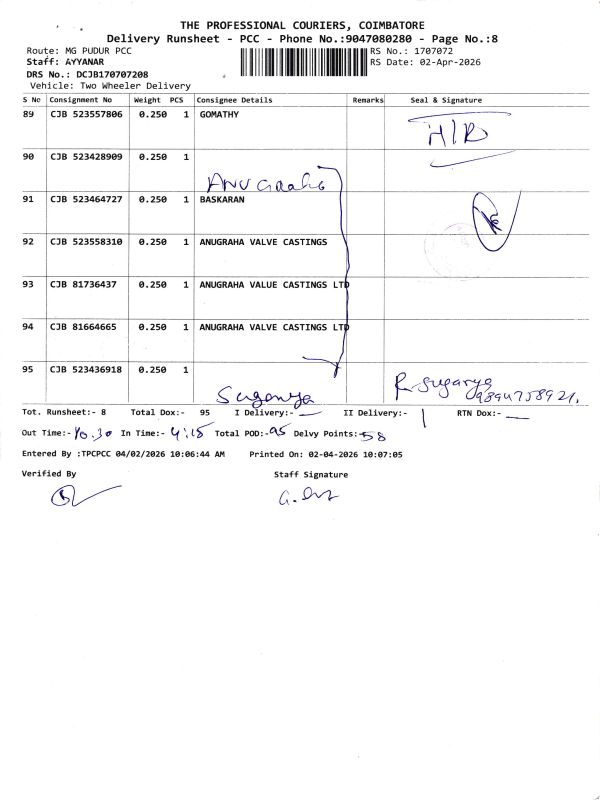 THE PROFESSIONAL COURIERS, COIMBATORE
Delivery Runsheet - PCC - Phone No.:9047080280 - Page No.:8
Route: MG PUDUR PCC RS No.: 1707072
Staff: AYYANAR RS Date: 02-Apr-2026
DRS No.: DCJB170707208
Vehicle: Two Wheeler Delivery
S No Consignment No Weight PCS Consignee Details Remarks Seal & Signature
89 CJB 523557806 0.250 1 GOMATHY H/R
90 CJB 523428909 0.250 1
Anugraha
91 CJB 523464727 0.250 1 BASKARAN
92 CJB 523558310 0.250 1 ANUGRAHA VALVE CASTINGS
93 CJB 81736437 0.250 1 ANUGRAHA VALUE CASTINGS LTD
94 CJB 81664665 0.250 1 ANUGRAHA VALVE CASTINGS LTD
95 CJB 523436918 0.250 1
Suganya R. Suganya
9894758921.
Tot. Runsheet:- 8 Total Dox:- 95 I Delivery:- — II Delivery:- | RTN Dox:- —
Out Time:- 10.30 In Time:- 4:15 Total POD:- 95 Delvy Points:- 58
Entered By :TPCPCC 04/02/2026 10:06:44 AM Printed On: 02-04-2026 10:07:05
Verified By Staff Signature